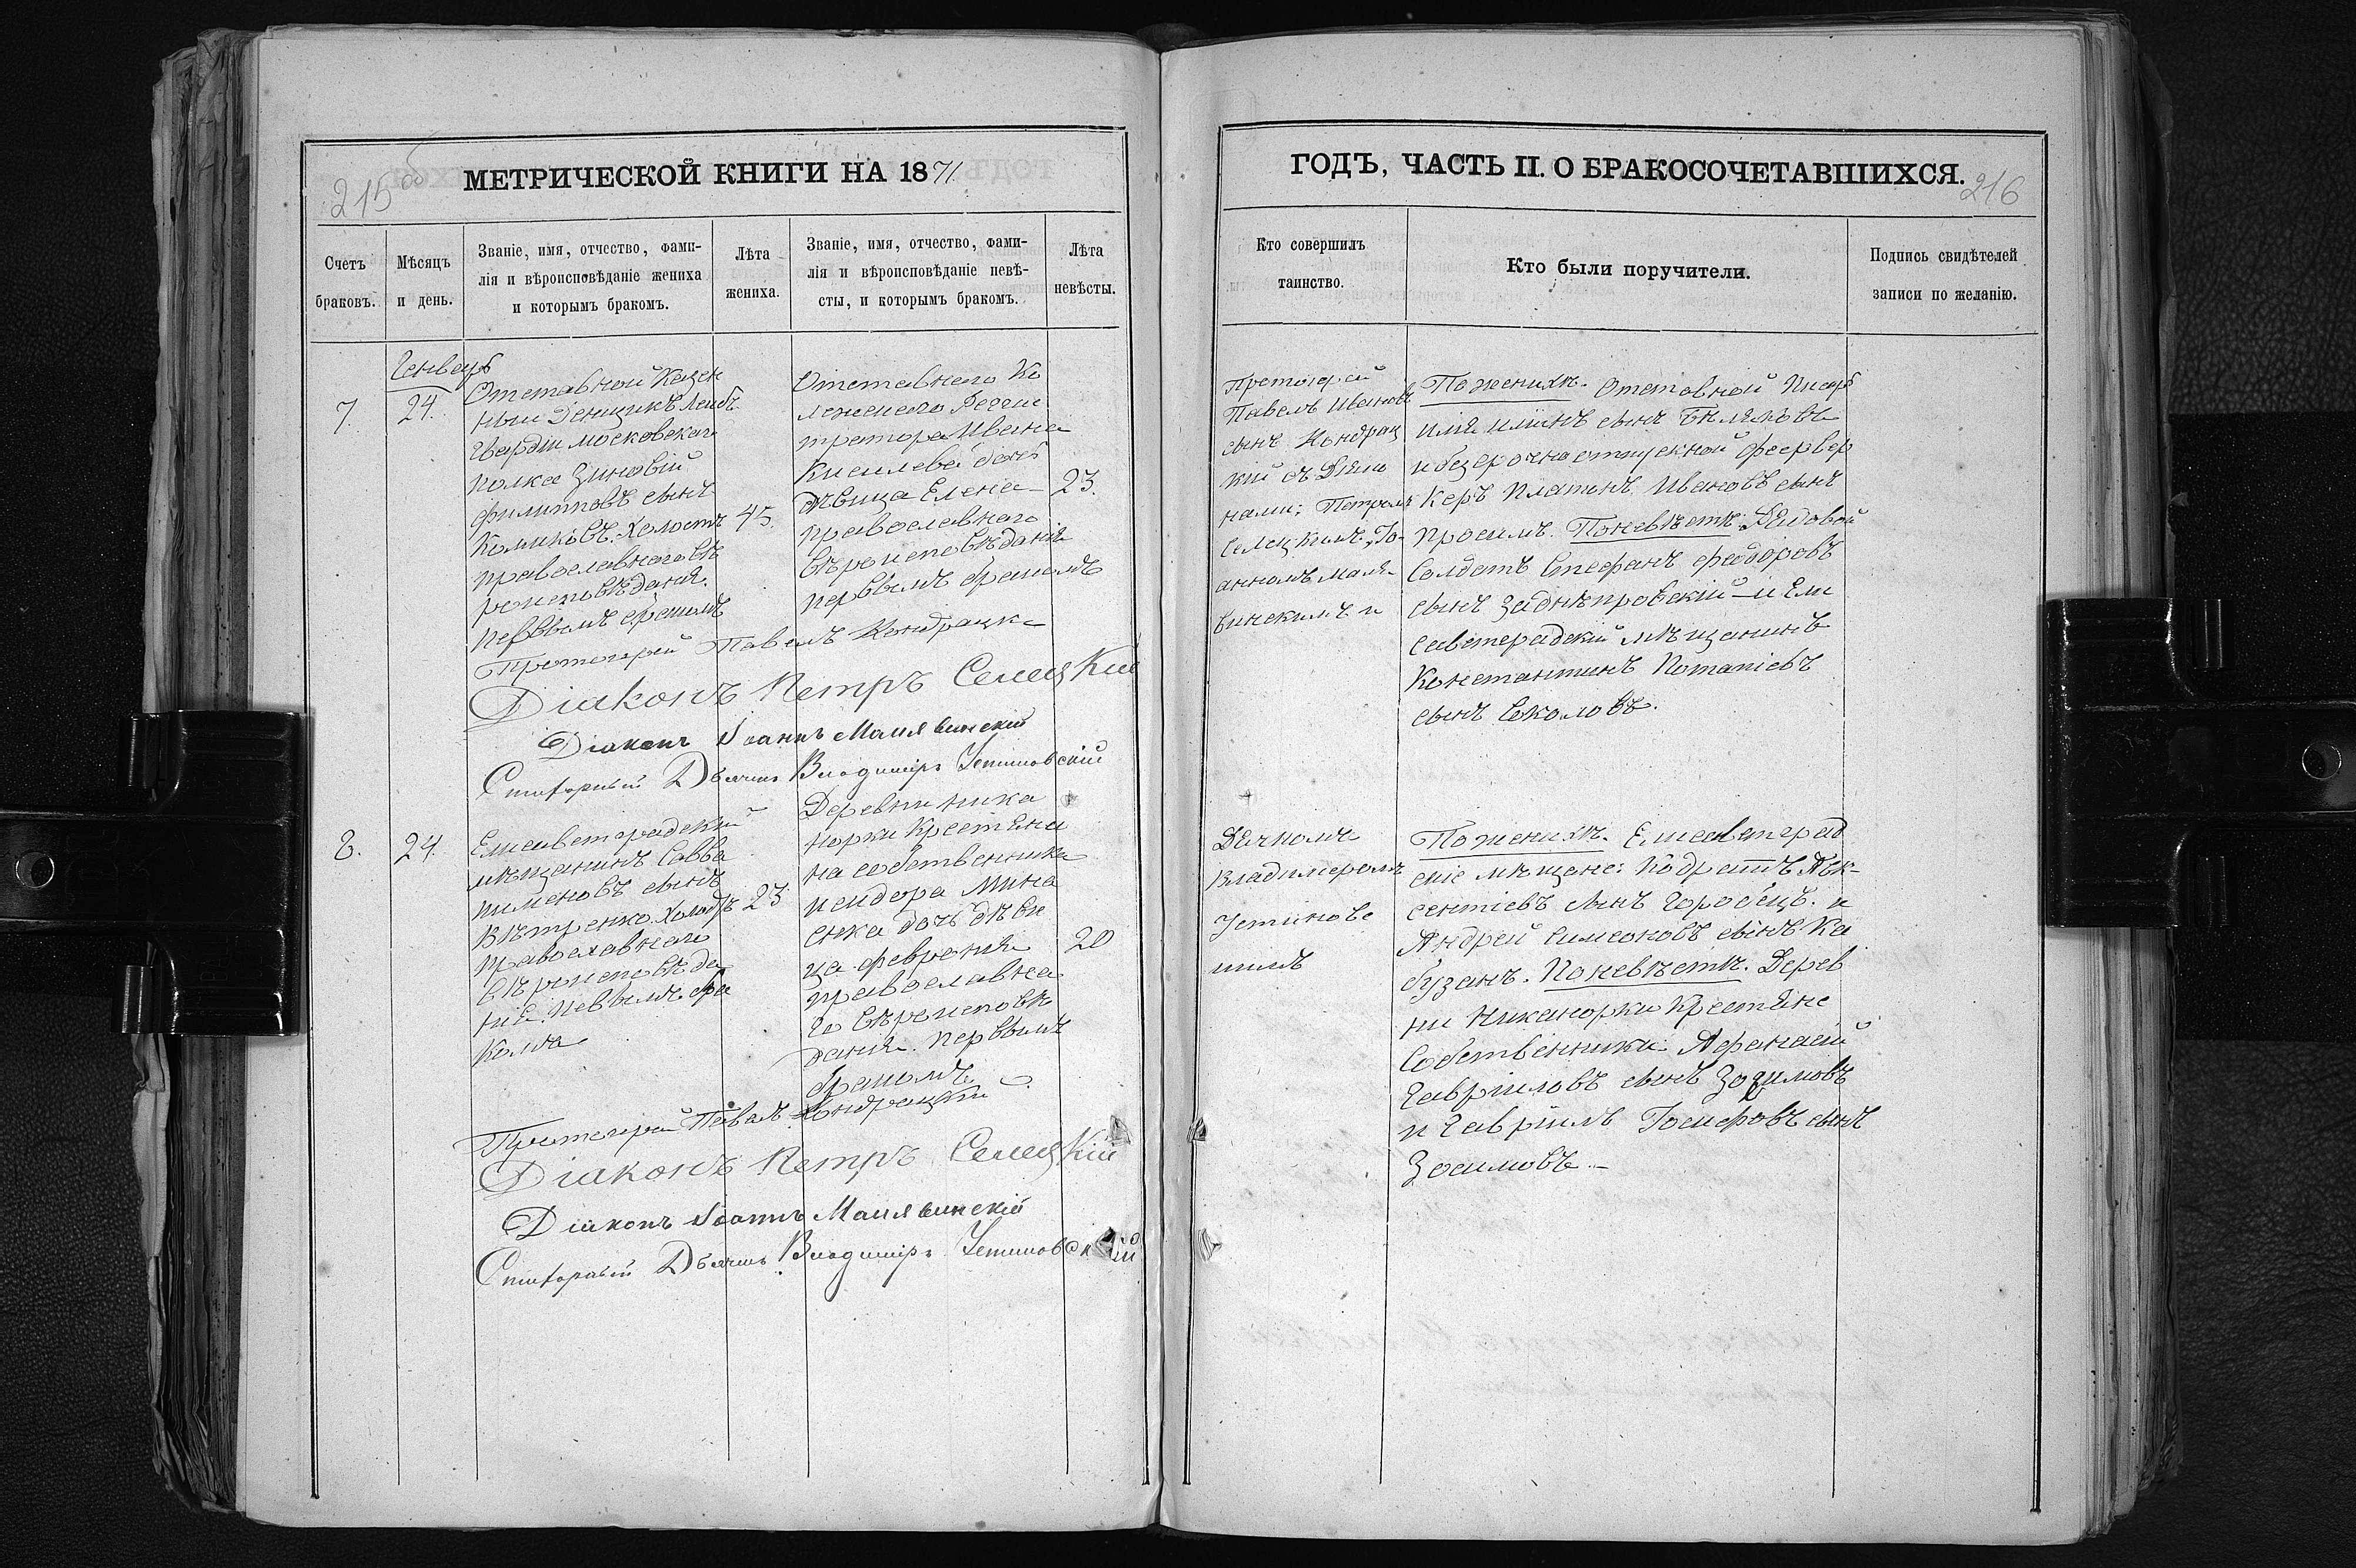 215 об
МЕТРИЧЕСКОЙ КНИГИ НА 1871
Счетъ браковъ.
Мѣсяцъ и день.
Званіе, имя, отчество, фами-
лія и вѣроисповѣданіе жениха
и которымъ бракомъ.
Лѣта
жениха.
Званіе, имя, отчество, фами-
лія и вѣроисповѣданіе невѣ-
сты, и которымъ бракомъ.
Лѣта
невѣсты.
7.
Генварь
24.
Отставной Казен
ный Денщикъ Лейбъ
Гвардіи московскаго
полка Зиновій
филипповъ сынъ
Комиковъ. Холостъ
православнаго вѣ
роисповѣданія.
первымъ бракомъ
45.
Отставнаго Ко
лежскаго Регис
тратора Ивана
Киселева дочь
дѣвица Елена
православнаго
вѣроисповѣданія
первымъ бракомъ
23.
Протоіерей Павелъ Кондрацкі
Діаконъ Петръ Селецкій
Діаконъ Іоаннъ Малявинскій
Стихарный Дьячекъ Владиміръ Устиновскій
8.
24.
Елисаветградскій
мѣщанинъ Савва
пименовъ сынъ
Вѣтренко. Холостъ
православнаго
вѣроисповѣда
нія. певымъ бра
комъ
23
Деревни Ника
норки Крестяни
на собственника
исидора Мина
енка дочь дѣви
ца феврония
православна
го вѣроисповѣ
данія. первымъ
бракомъ.
20
Протоіерей Павелъ Кондрацкій
Діаконъ Петръ Селецкій
Діаконъ Іоаннъ Малявинскій
Стихарный Дьячекъ Владиміръ Устиновскій
ГОДЪ, ЧАСТЬ II. О БРАКОСОЧЕТАВШИХСЯ.
216
Кто совершилъ
таинство.
Кто были поручители.
Подпись свидѣтелей
записи по желанію.
Протоіерей
Павелъ Ивановъ
сынъ Кондрац
кій съ Діяко
нами: Петромъ
Селецкимъ, Іо-
анномъ Маля-
винскимъ и
По женихѣ. Отставной Писарь
илія илиинъ сынъ Бѣляковъ
и безсрочноотпускной феервер
керъ Платонъ Ивановъ сынъ
Просимъ. По невѣстѣ: Рядовой
Солдатъ Стефанъ феодоровъ
сынъ Заднѣпровскій и Ели
саветградскій мѣщанинъ
Константинъ Потапіевъ
сынъ Соколовъ.
Дячкомъ
Владимеромъ
Устиновс
кимъ
По женихѣ. Елисаветград
скіе мѣщане: Кодратъ Авк-
сентіевъ сынъ Городецъ. и
Андрей симеоновъ сынъ Ка
бузанъ. По невѣстѣ. Дерев
ни Никанорки Крестяне
Собственники: Афанасій
Гавріиловъ сынъ Зосимовъ
и Гавріилъ Іосифовъ сынъ
Зосимовъ.